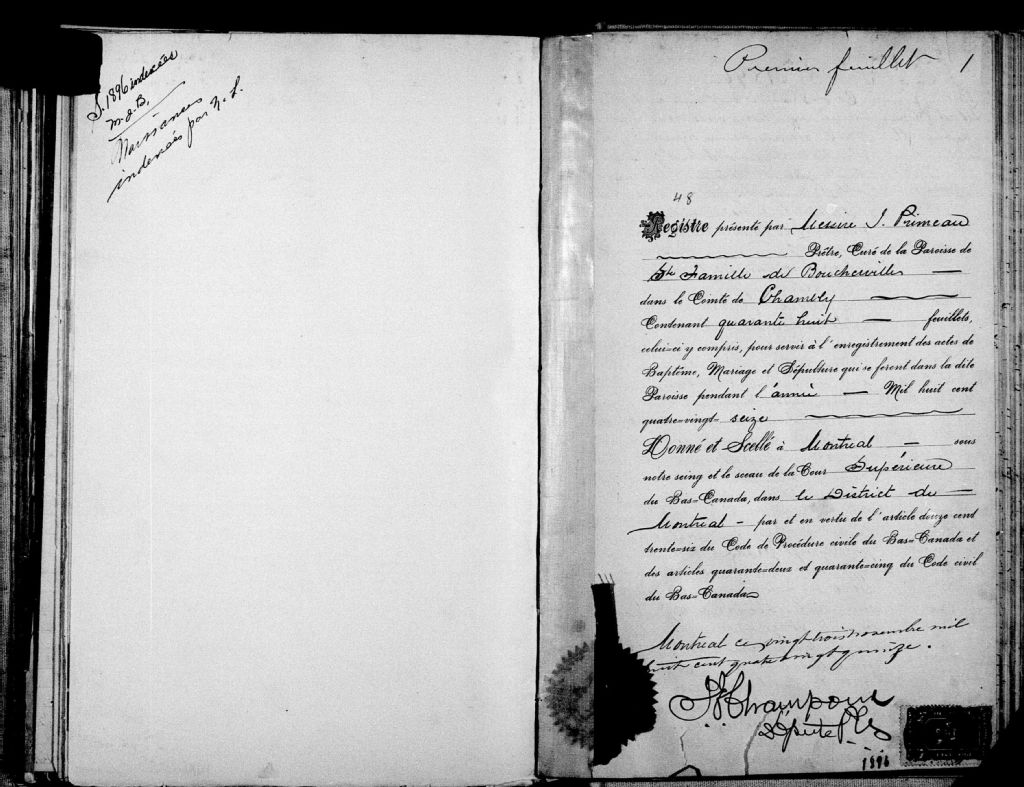 S. 1896 indexées
M.J.B.
Naissances
indexées par N. L.
Premier feuillet 1
48
Registre présenté par Messire J. Primeau
Prêtre, Curé de la Paroisse de
Ste Famille de Boucherville
dans le Comté de Chambly
Contenant quarante huit feuillets,
celui-ci y compris, pour servir à l'enregistrement des actes de
Baptême, Mariage et Sépulture qui se feront dans la dite
Paroisse pendant l'année Mil huit cent
quatre-vingt-seize
Donné et Scellé à Montreal sous
notre seing et le sceau de la Cour Supérieure
du Bas-Canada, dans le District de
Montreal - par et en vertu de l'article douze cent
trente-six du Code de Procédure civile du Bas-Canada et
des articles quarante-deux et quarante-cinq du Code civil
du Bas-Canada
Montreal ce vingt trois novembre mil
huit cent quatre vingt quinze.
Champoux
Député P.
1896